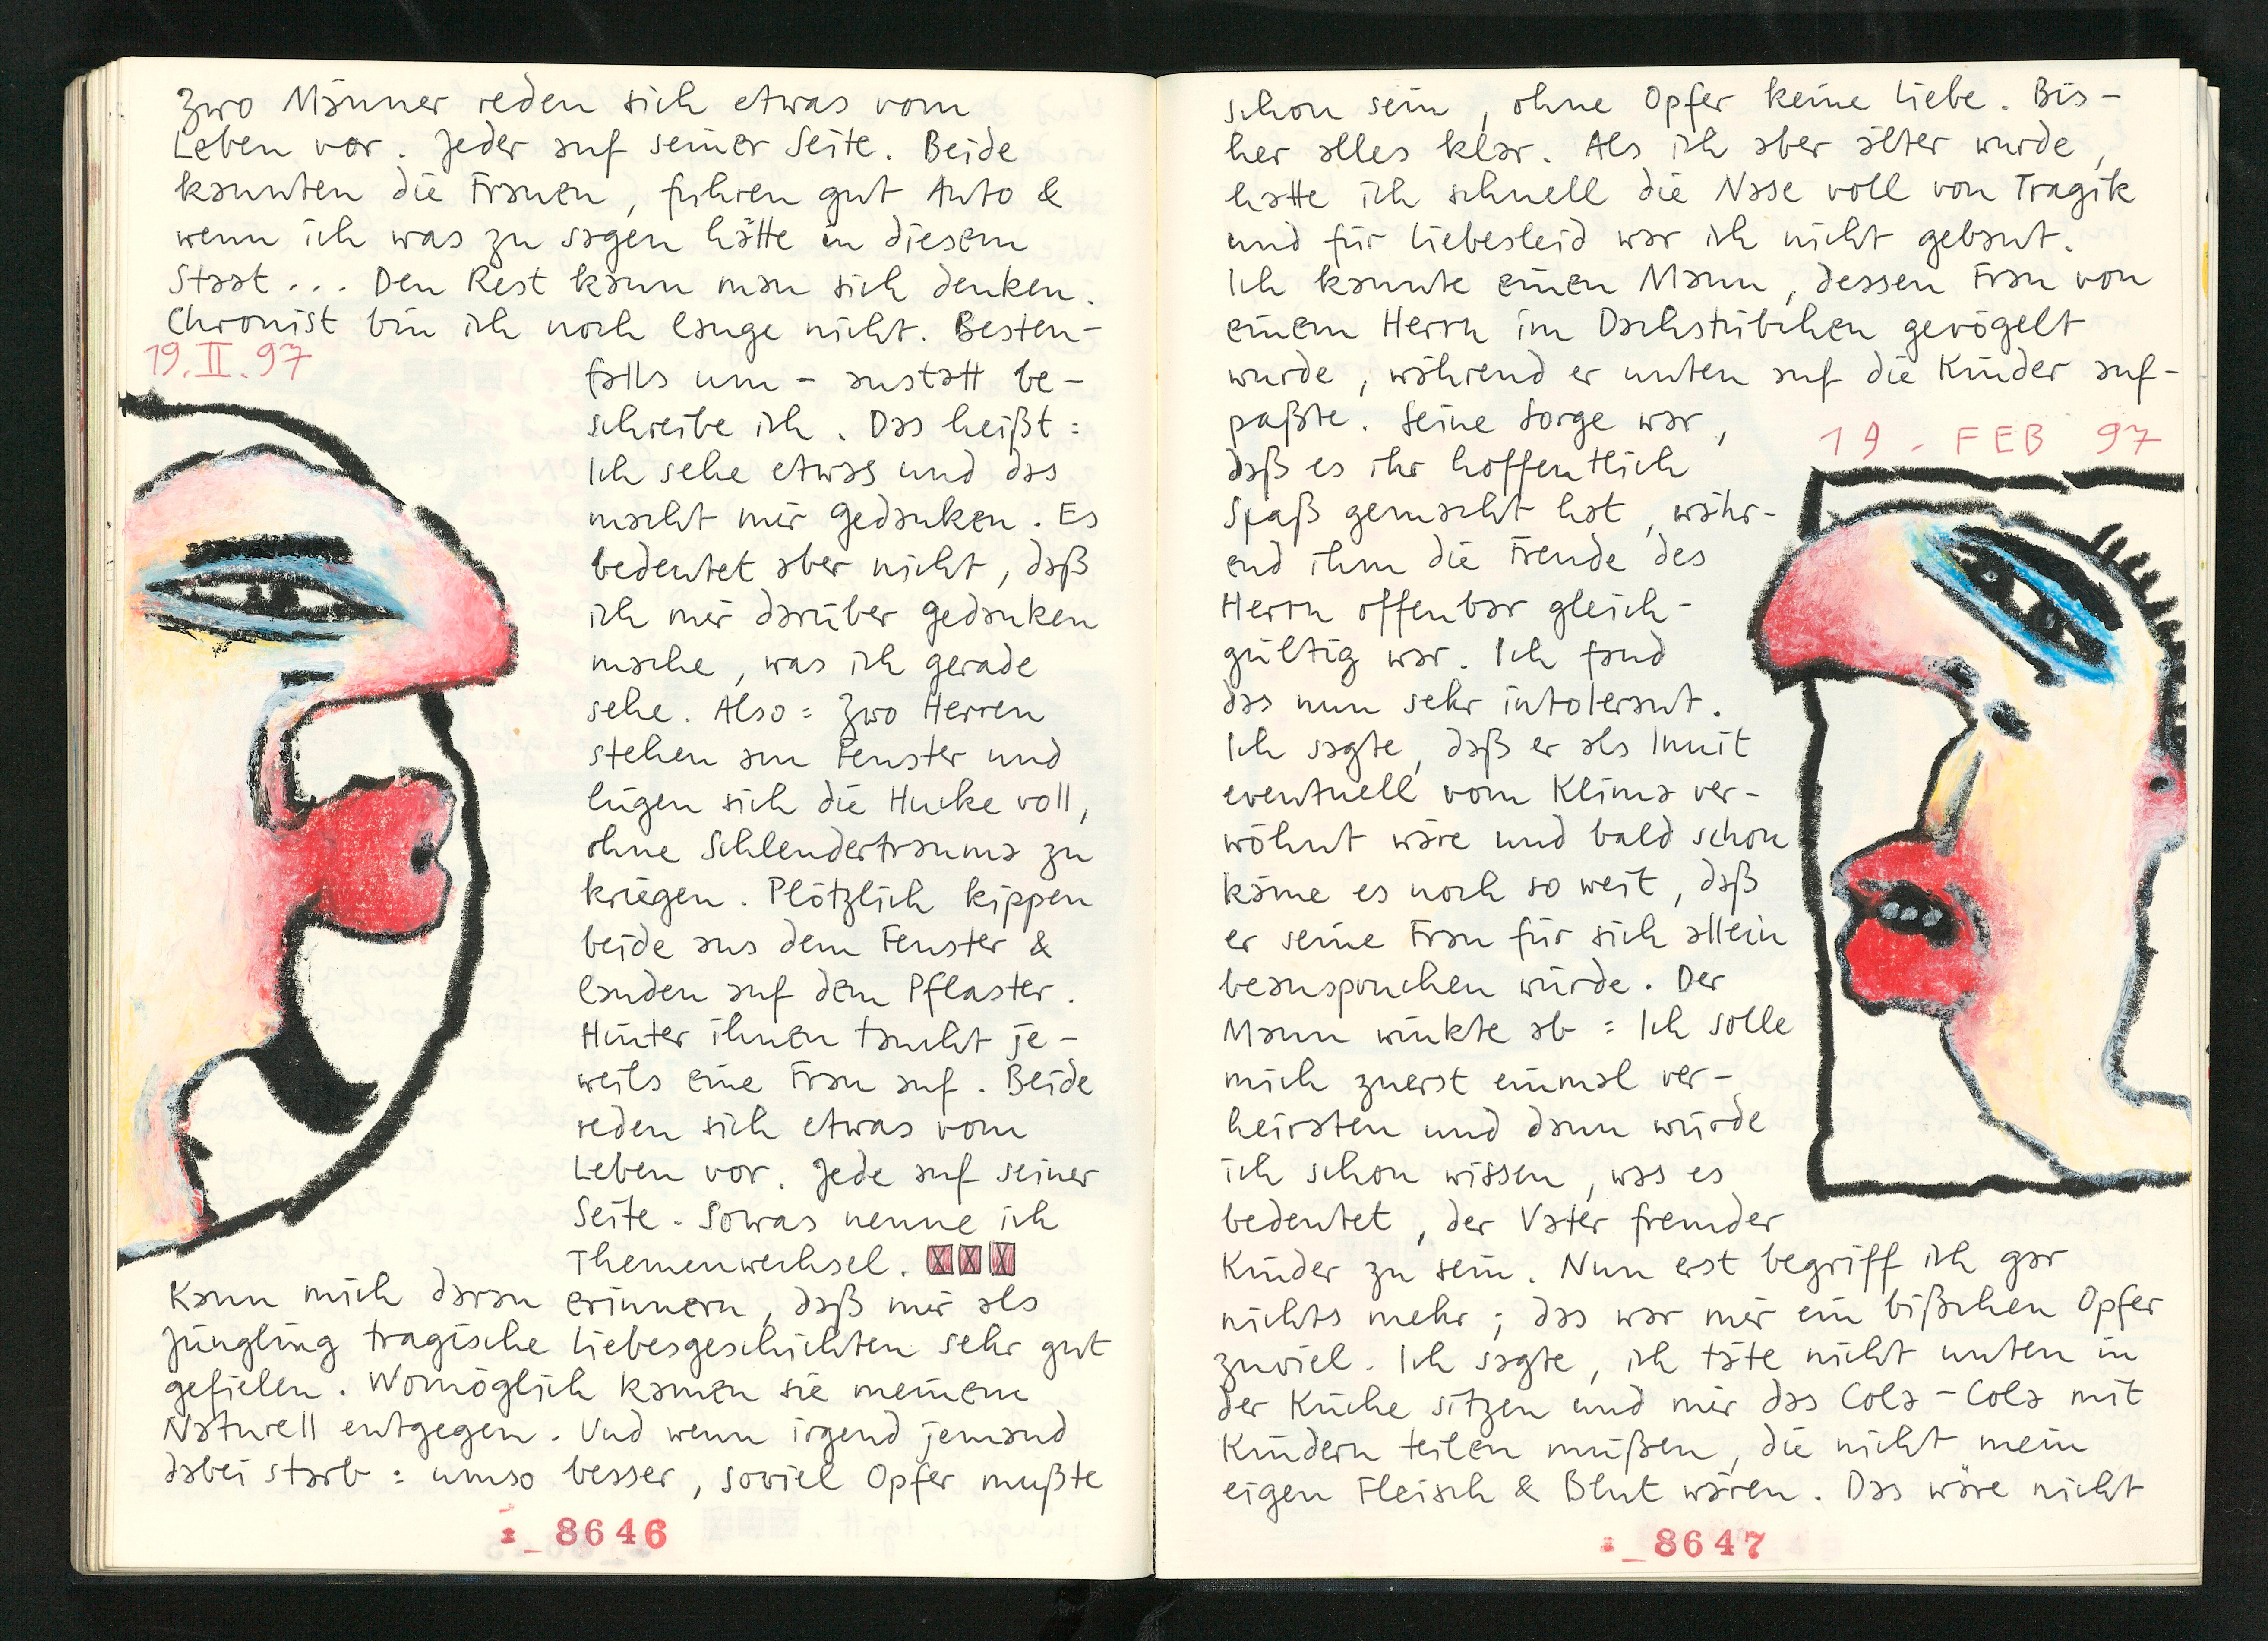 Zwo Männer reden sich etwas vom
Leben vor. Jeder auf seiner Seite. Beide
kannten die Frauen, fuhren gut Auto &
wenn ich was zu sagen hätte in diesem
Staat... Den Rest kann man sich denken.
Chronist bin ich noch lange nicht. Besten-
19. II. 97
falls um- anstatt be-
schreibe ich. Das heißt:
Ich sehe etwas und das
macht mir Gedanken. Es
bedeutet aber nicht, daß
ich mir darüber Gedanken
mache, was ich gerade
sehe. Also: Zwo Herren
stehen am Fenster und
lügen sich die Hucke voll,
ohne Schlendertrauma zu
kriegen. Plötzlich kippen
beide aus dem Fenster &
landen auf dem Pflaster.
Hinter ihnen taucht je-
weils eine Frau auf. Beide
reden sich etwas vom
Leben vor. Jede auf seiner
Seite. Sowas nenne ich
Themenwechsel. XXX
Kann mich daran erinnern, daß mir als
Jüngling tragische Liebesgeschichten sehr gut
gefielen. Womöglich kamen sie meinem
Naturell entgegen. Und wenn irgend jemand
dabei starb: umso besser, soviel Opfer mußte
8646
schon sein, ohne Opfer keine Liebe. Bis-
her alles klar. Als ich aber älter wurde,
hatte ich schnell die Nase voll von Tragik
und für Liebesleid war ich nicht gebaut.
Ich kannte einen Mann, dessen Frau von
einem Herrn im Dachstübchen gevögelt
wurde, während er unten auf die Kinder auf-
paßte. Seine Sorge war,
19. FEB 97
daß es ihr hoffentlich
Spaß gemacht hat, währ-
end ihm die Freude des
Herrn offenbar gleich-
gültig war. Ich fand
das nun sehr intolerant.
Ich sagte, daß er als Inuit
eventuell vom Klima ver-
wöhnt wäre und bald schon
käme es noch so weit, daß
er seine Frau für sich allein
beanspruchen würde. Der
Mann winkte ab: Ich solle
mich zuerst einmal ver-
heiraten und dann würde
ich schon wissen, was es
bedeutet, der Vater fremder
Kinder zu sein. Nun erst begriff ich gar
nichts mehr; das war mir ein bißchen Opfer
zuviel. Ich sagte, ich täte nicht unten in
der Küche sitzen und mir das Cola-Cola mit
Kindern teilen müßen, die nicht mein
eigen Fleisch & Blut wären. Das wäre nicht
8647